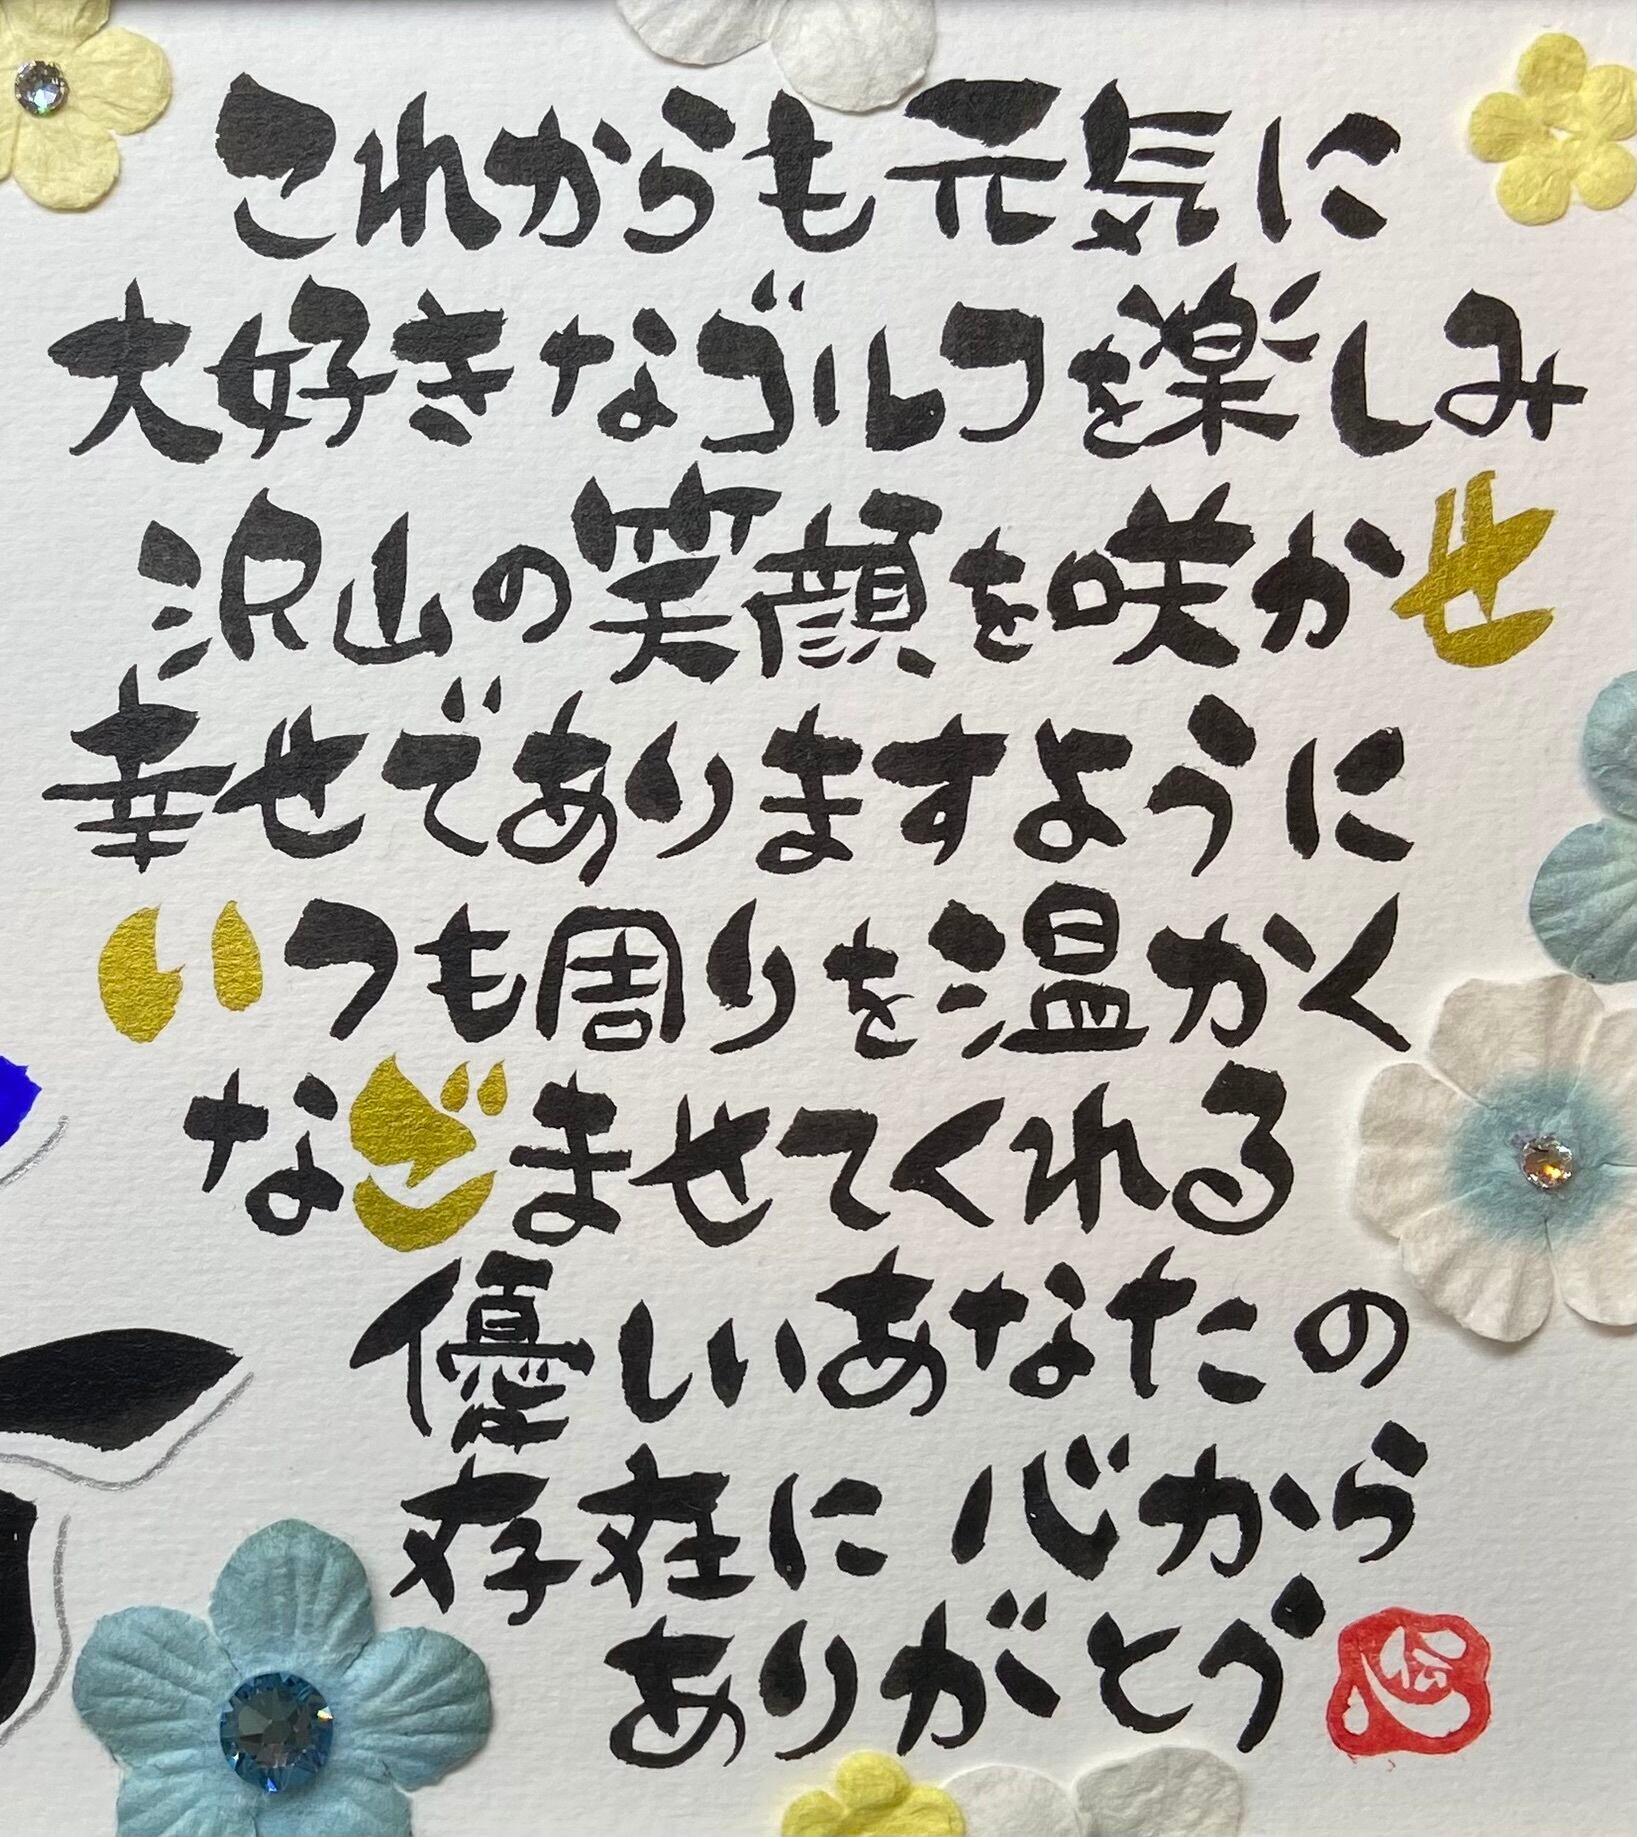 これからも元気に
大好きなゴルフを楽しみ
沢山の笑顔を咲かせ
幸せでありますように
いつも周りを温かく
なごませてくれる
優しいあなたの
存在に 心から
ありがとう